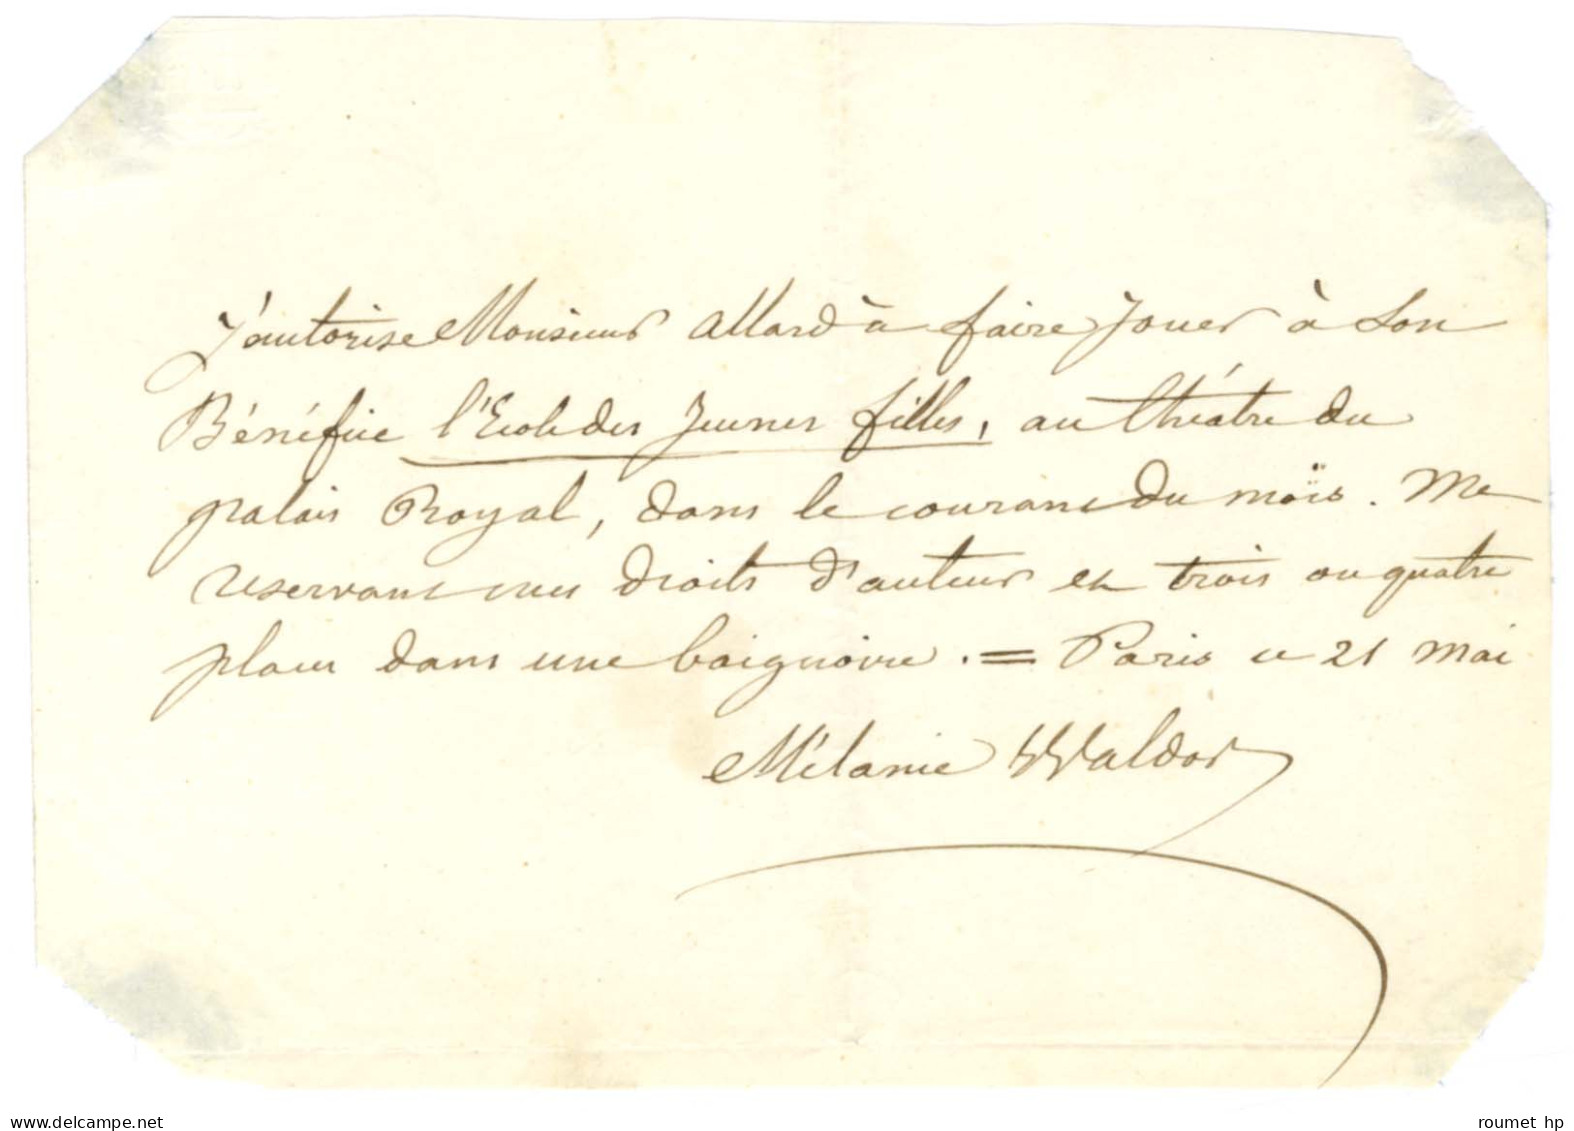 J'autorise Monsieur allard à faire jouer à Son
Bénéfice l'Ecole des Jeunes filles, au théatre du
palais Royal, dans le courant du moïs. Me
reservant mes droits d'auteur et trois ou quatre
places dans une baignoire. = Paris ce 21 mai
Mélanie Waldor
www.delcampe.net
roumet hp